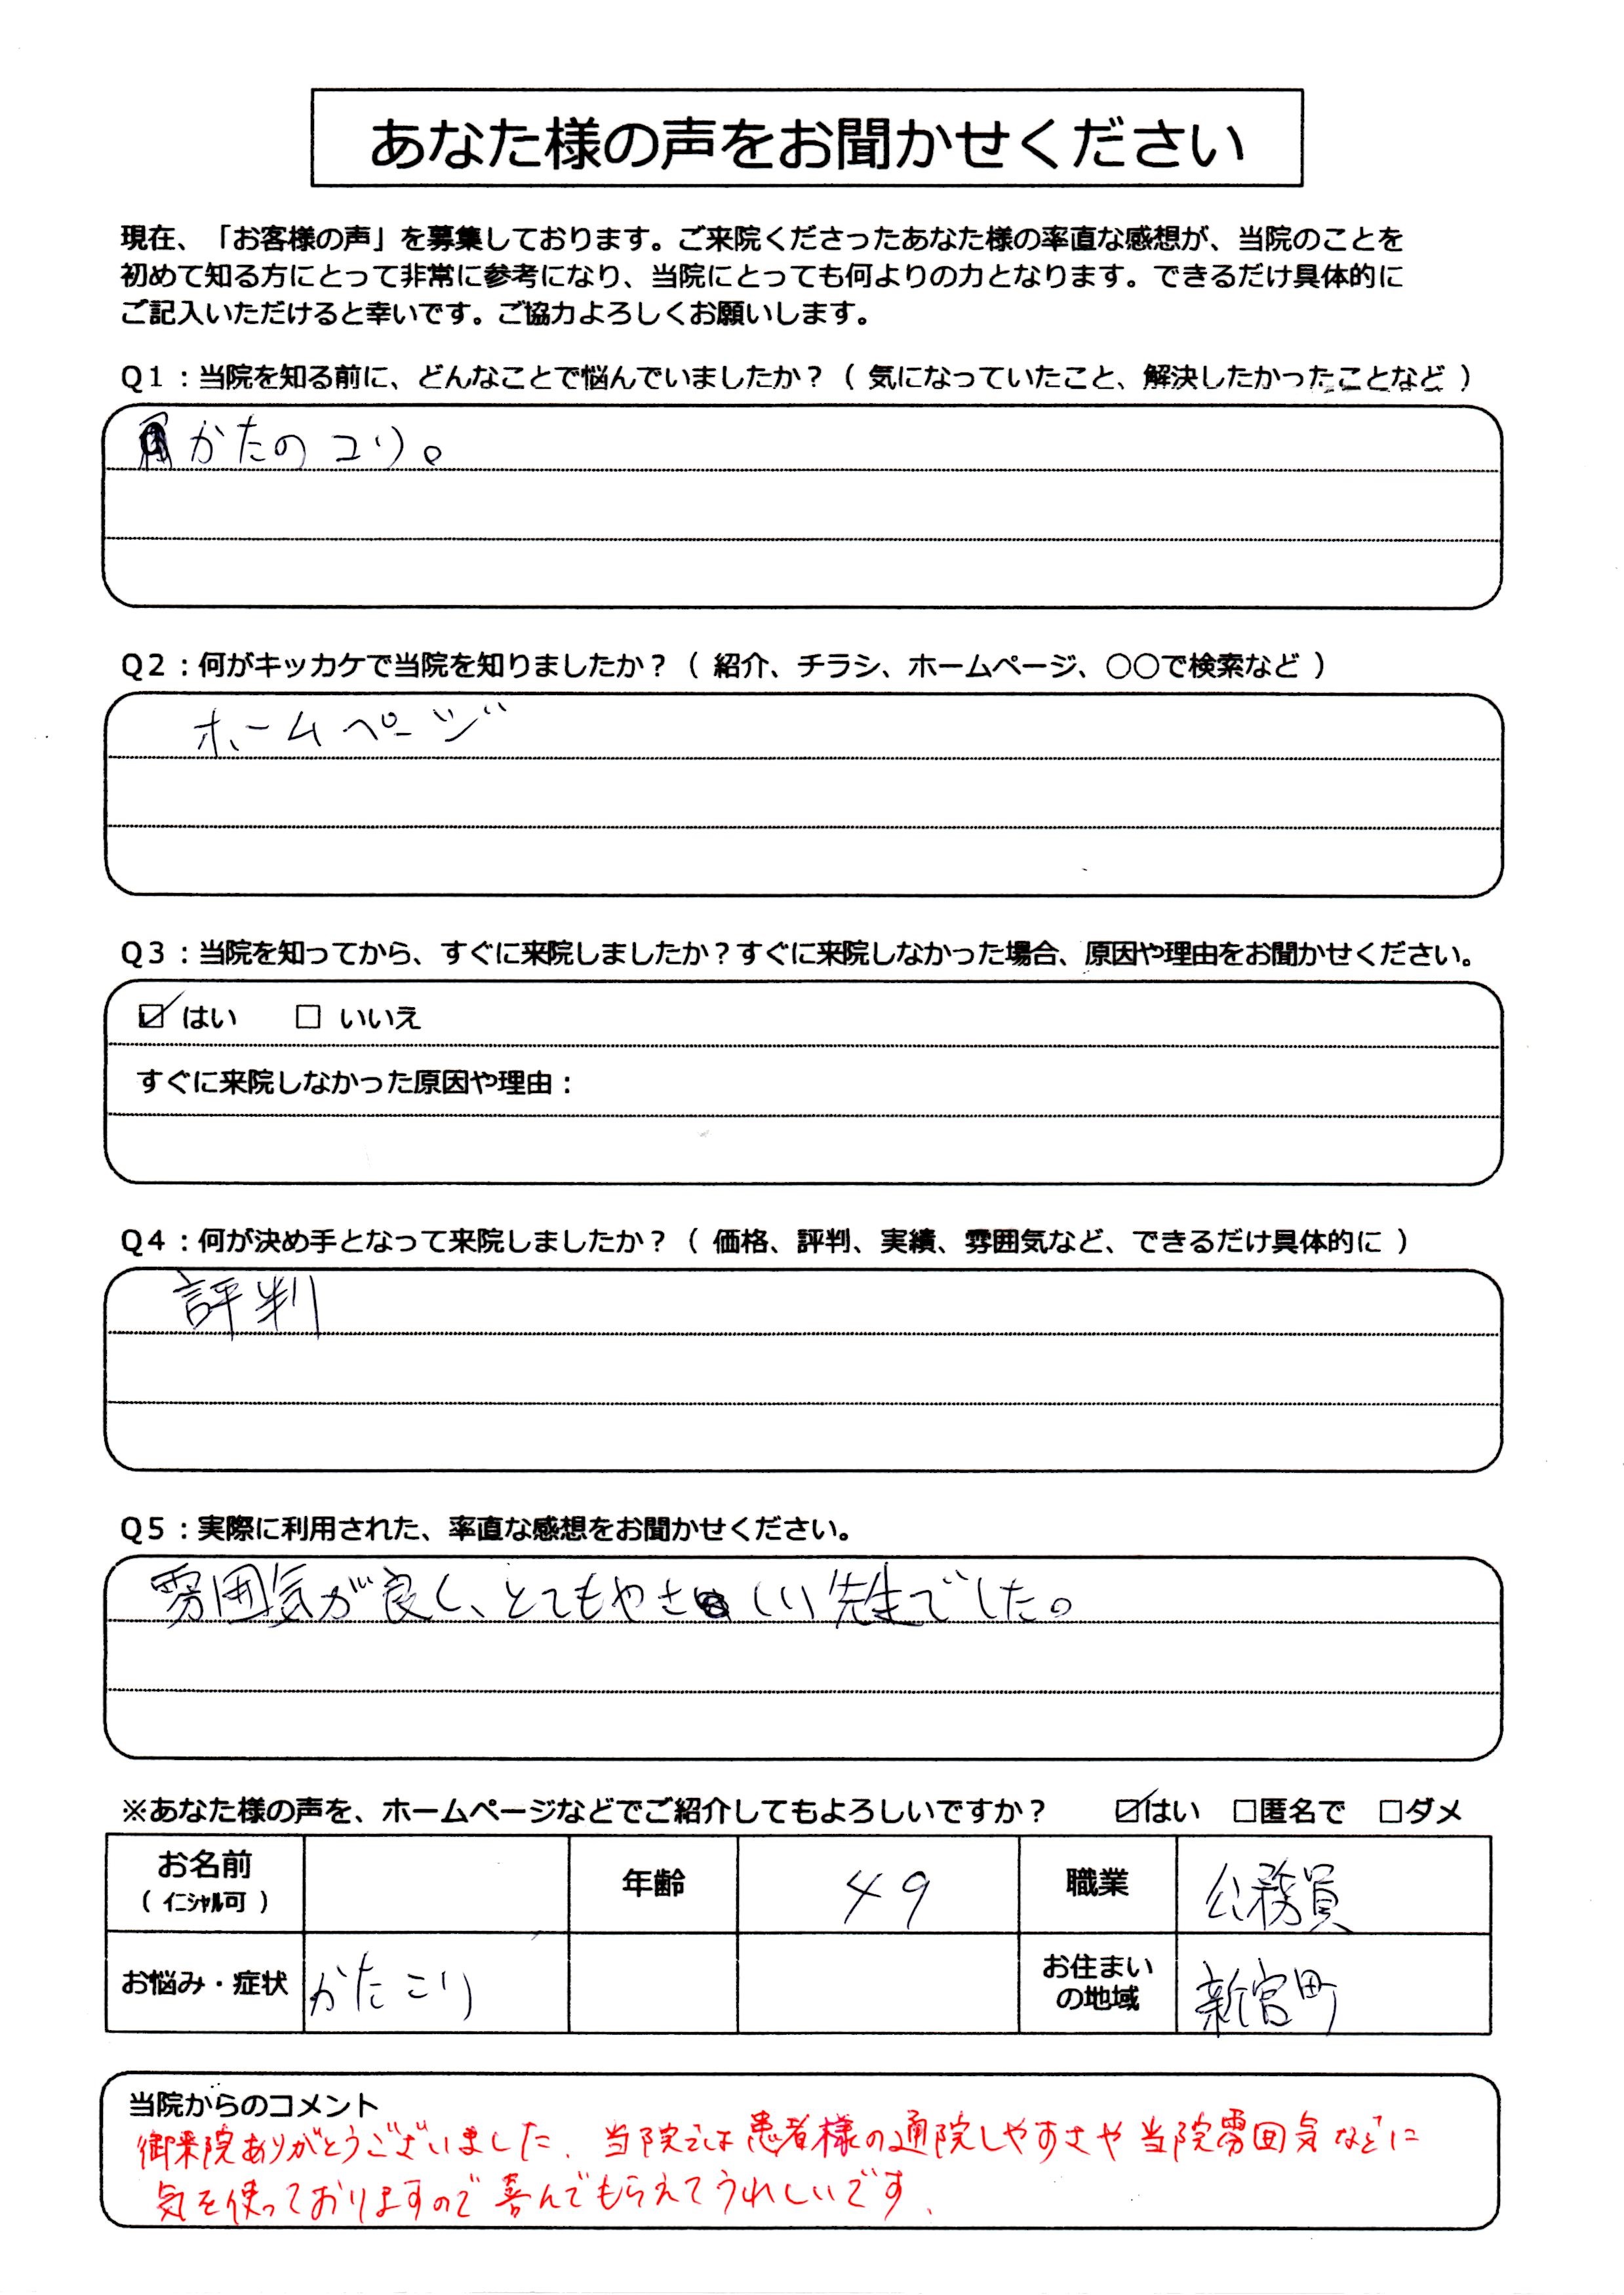 あなた様の声をお聞かせください
現在、「お客様の声」を募集しております。ご来院くださったあなた様の率直な感想が、当院のことを
初めて知る方にとって非常に参考になり、当院にとっても何よりの力となります。できるだけ具体的に
ご記入いただけると幸いです。ご協力よろしくお願いします。
Q1：当院を知る前に、どんなことで悩んでいましたか？（ 気になっていたこと、解決したかったことなど ）
かたのコリ。
Q2：何がキッカケで当院を知りましたか？（ 紹介、チラシ、ホームページ、○○で検索など ）
ホームページ
Q3：当院を知ってから、すぐに来院しましたか？すぐに来院しなかった場合、原因や理由をお聞かせください。
☑ はい □ いいえ
すぐに来院しなかった原因や理由：
Q4：何が決め手となって来院しましたか？（ 価格、評判、実績、雰囲気など、できるだけ具体的に ）
評判
Q5：実際に利用された、率直な感想をお聞かせください。
雰囲気が良く、とてもやさしい先生でした。
※あなた様の声を、ホームページなどでご紹介してもよろしいですか？ ☑はい □匿名で □ダメ
お名前 年齢 49 職業 公務員
（ イニシャル可 ）
お悩み・症状 かたこり お住まいの地域 新宮町
当院からのコメント
御来院ありがとうございました。当院では患者様の通院しやすさや当院雰囲気などに
気を使っておりますので喜んでもらえてうれしいです。